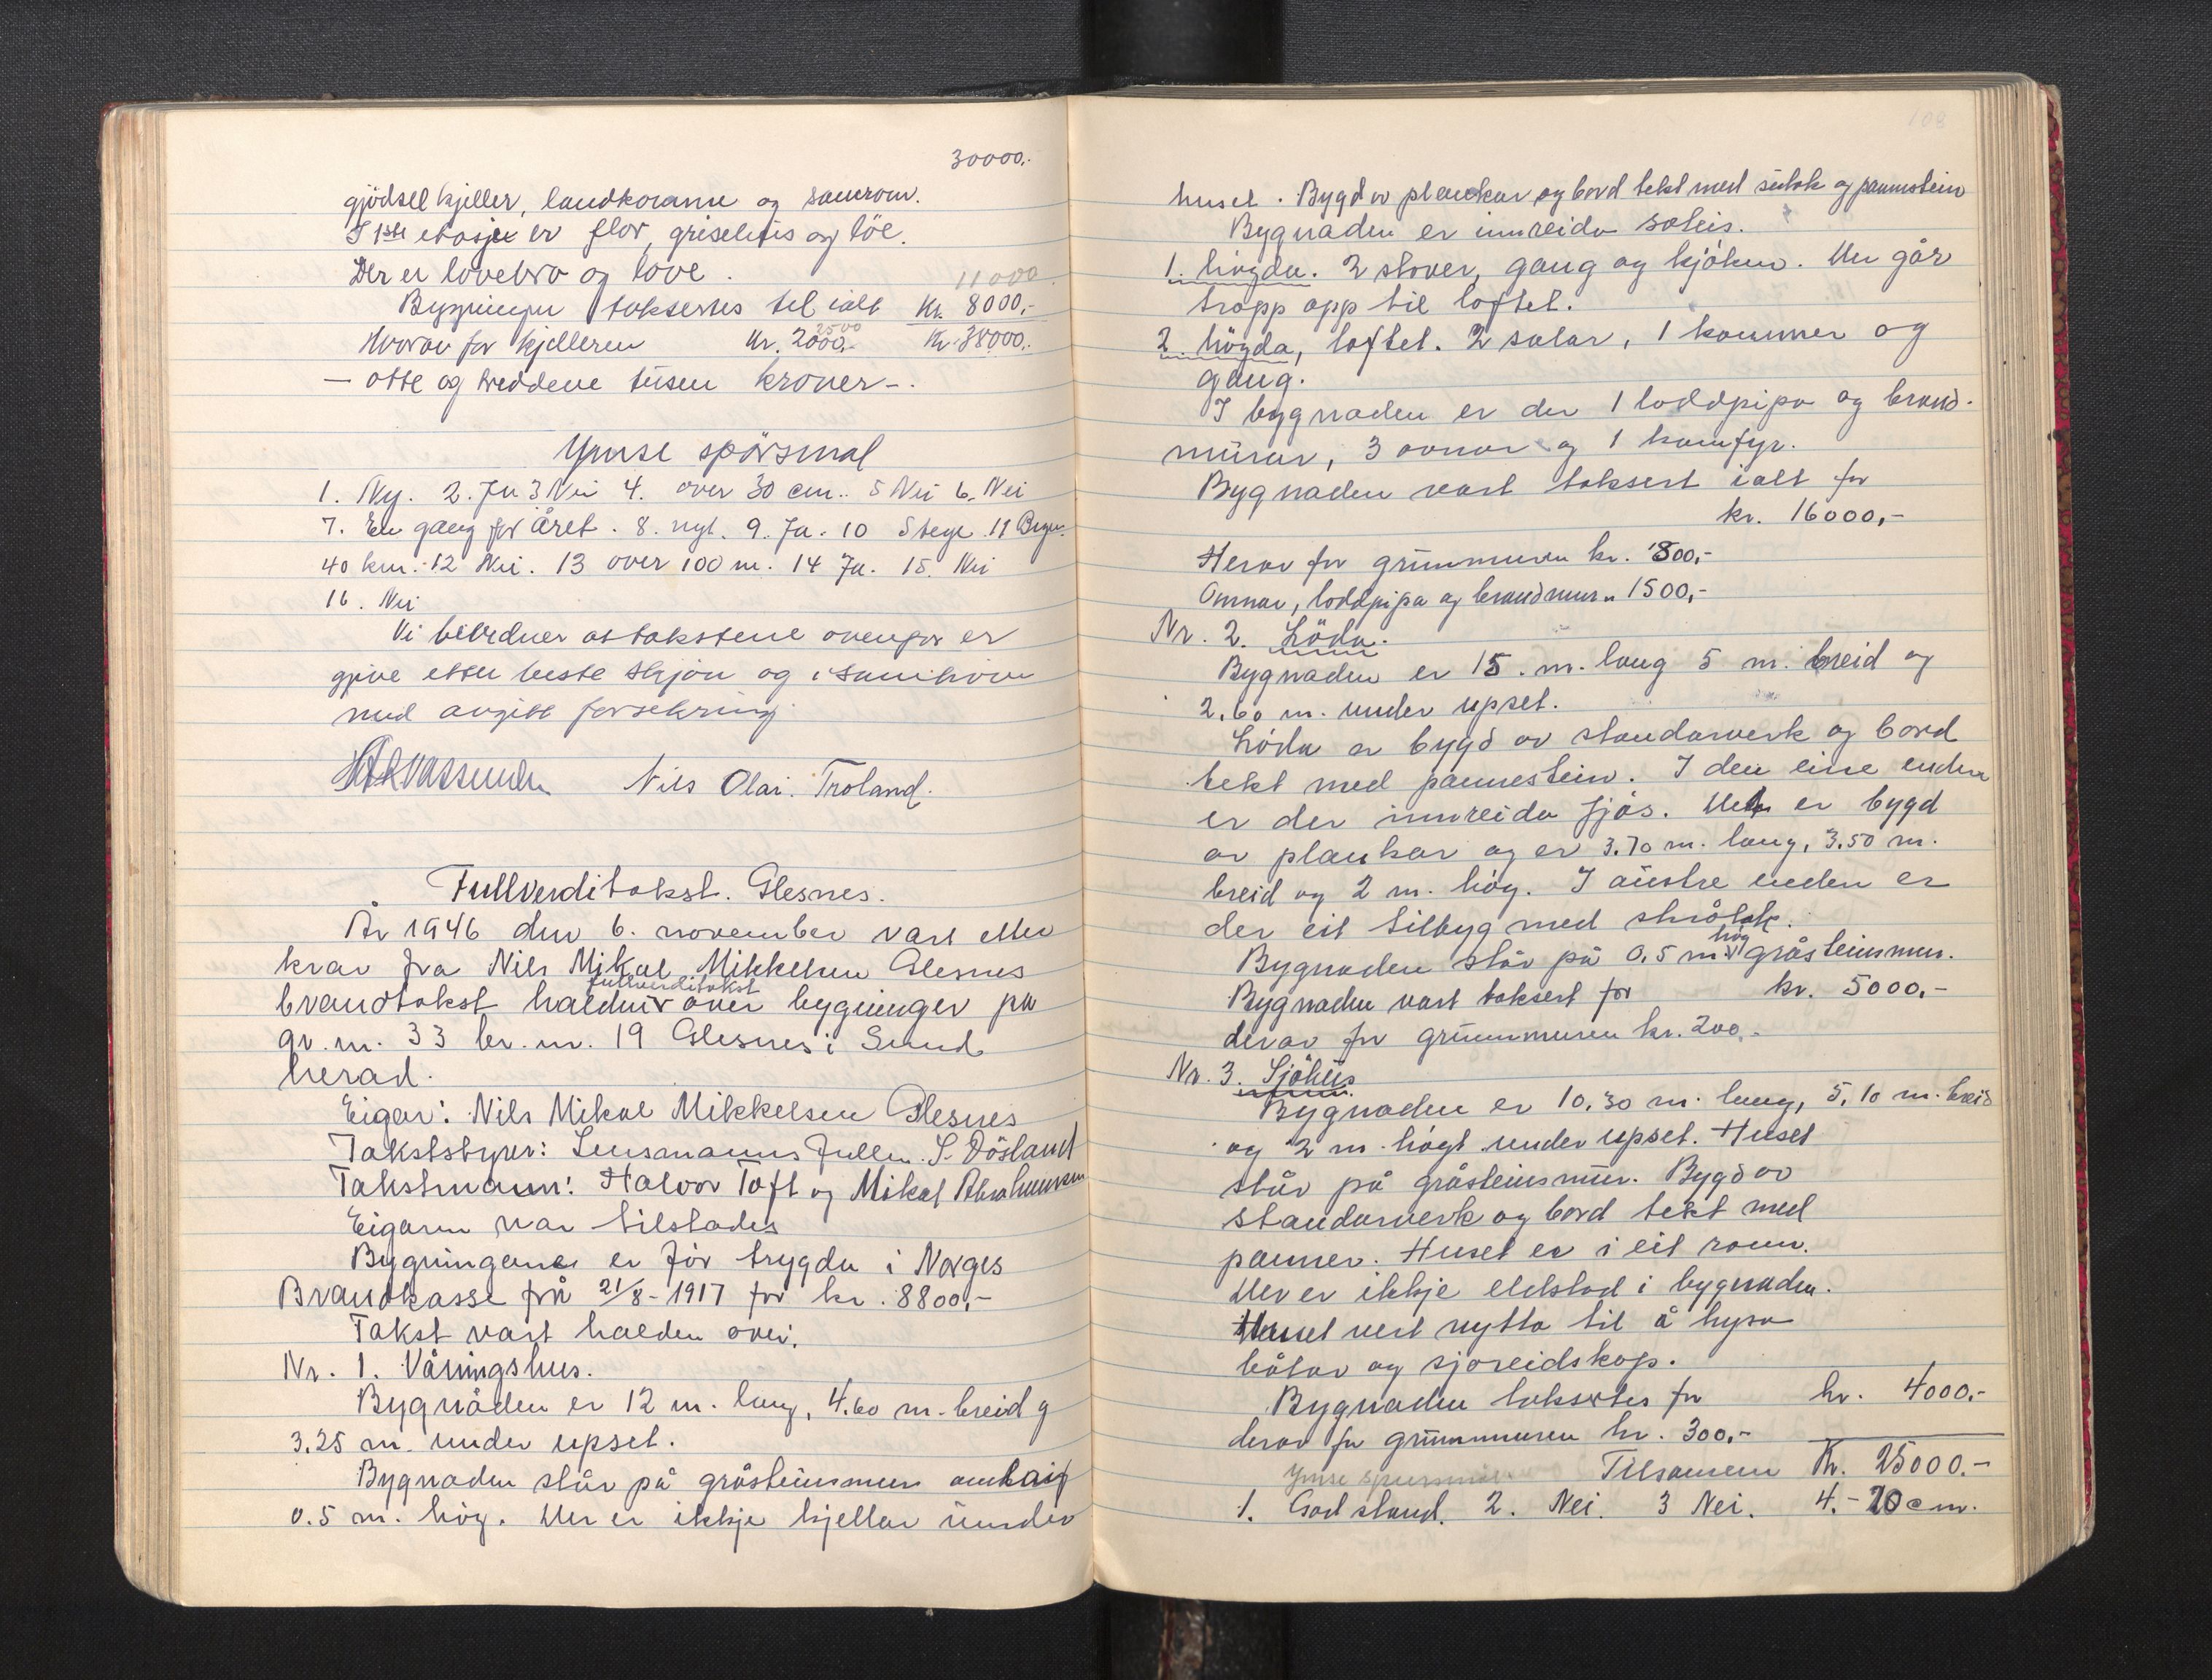 30000.-
gjödselkjeller, landkoranne og samrom.
I 1ste etasje er flor, grisehus og löe.
Der er lovebro og love.
11000
Bygningen taksernes til ialt Kr. 8000,-
Hvorav for kjelleren kr. 2000,- 2500 Kr. 38000.-
— otte og treddeve tusen kroner -.
Ymse spörsmal
1. Ny. 2. Ja 3 Nei 4. over 30 cm.. 5 Nei 6. Nei
7. En gang for Året. 8. nyt. 9. Ja. 10 Stege 11 Bergen
40 km. 12 Nei. 13 over 100 m. 14 Ja. 15. Nei
16. Nei
Vi bevidner at takstene ovenfor er
give etter beste skjön og i samhöve
med avgitt forsekring
Nils Olai. Troland.
Fullverditakst. Glesnes.
År 1946 den 6. november vart etter
krav fra Nils Mikal Mikkelsen Glesnes
fullverditakst
brandtakst halden over bygninger på
gr. nr. 33 br. nr. 19 Glesnes i Sund
herad.
Eigar: Nils Mikal Mikkelsen Glesnes
Takststyrer: Lensmanns fullm. S. Dösland
Takstmann: Halvor Toft og Mikal Abrahamsen
Eigaren var tilstades
Bygningane er för trygda i Norges
Brandkasse frå 21/8 - 1917 for kr. 8800,-
Takst vart halden over:
Nr. 1. Våningshus.
Bygnåden er 12 m. lang, 4.60 m. breid og
3,25 m. under upset.
Bygnaden står på gråsteinsmur omlaig
0.5 m. høg. Der er ikkje kjellar under
108
huset. Bygd av plankar og bord tekt med sutak og pannstein
Bygnaden er innreida soleis.
1. högda. 2 stover, gang og kjöken. Der går
tropp opp til loftet.
2. högda, loftet. 2 salar, 1 kammer og
gang.
I bygnaden er der 1 loddpipa og brand-
murar, 3 ovnar og 1 komfyr.
Bygnaden vart taksert ialt for
kr. 16000,-
Herav for grunnmuren kr. 800,-
Omnar, loddpipa og brandmur „ 1500,-
Nr. 2. Löda.
Bygnaden er 15. m. lang 5 m. breid og
2,60 m. under upset.
Löda er bygd av standarverk og bord
tekt med pannestein. I den eine enden
er der innreida fjös. Det er bygd
av plankar og er 3.70 m. lang, 3.50 m.
breid og 2 m. høg. I austre enden er
der eit tilbyg med skråtak.
høg
Bygnaden står på 0,5 m. gråsteinsmur.
Bygnaden vart taksert for kr. 5000,-
derav for grunnmuren kr. 200,-
Nr. 3. Sjöhus
Bygnaden er 10,30 m. lang, 5,10 m. breid
og 2 m. högt under upset. Huset
står på gråsteinsmur. Bygd av
standarverk og bord tekt med
panner. Huset er i eit rom.
Der er ikkje eldstad i bygnaden.
Huset vert nytta til å hysa
båtar og sjoreidskap.
Bygnaden taksertes for kr. 4000.-
derav for grunnmuren kr. 300,-
Ymse spursmål Tilsamen Kr. 25000.-
1. God stand. 2. Nei. 3 Nei. 4. - 20 cm.